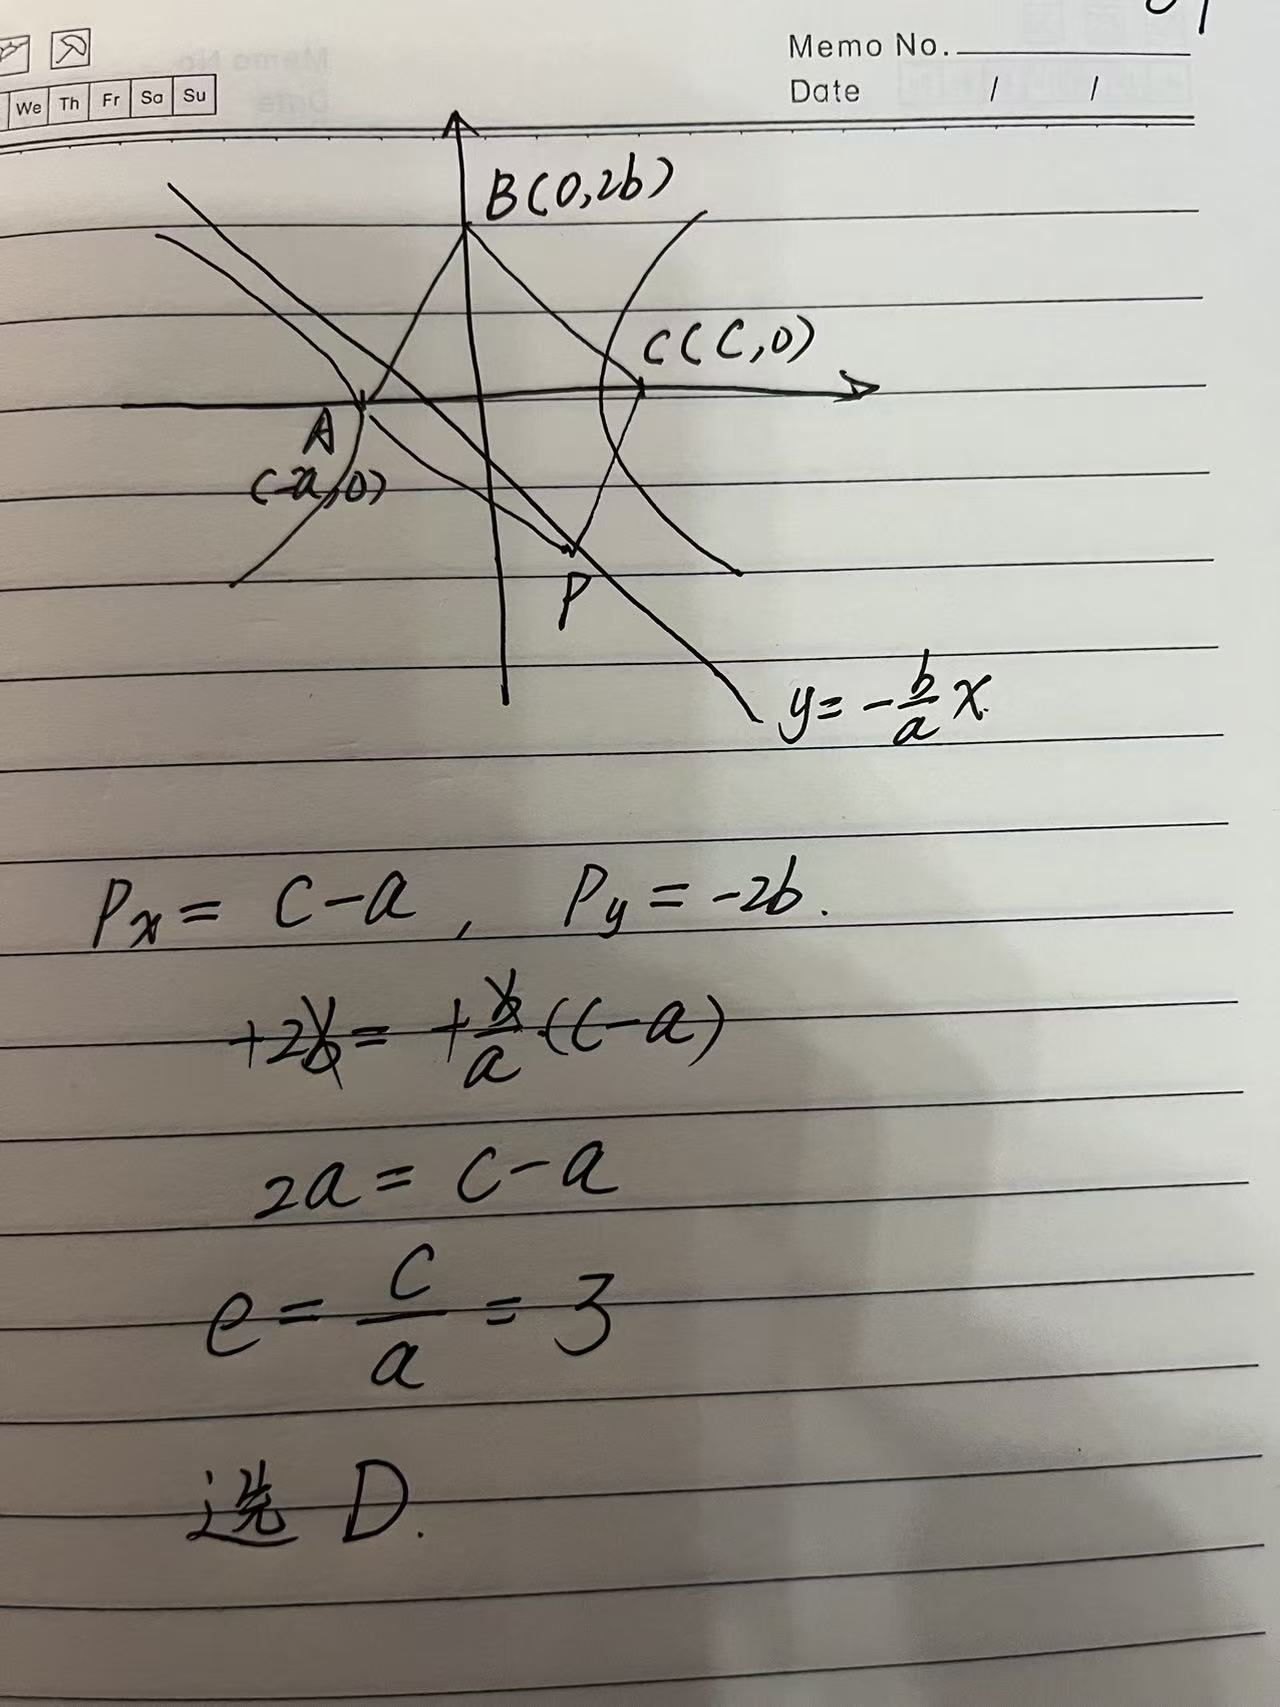 Memo No.
We Th Fr Sa Su
Date / /
B(0,2b)
C(C,0)
A
(-a,0)
P
y=-\frac{b}{a}x.
Px = C-a, Py = -2b.
+2b = +\frac{b}{a}·(C-a)
2a = C-a
e = \frac{C}{a} = 3
选 D.